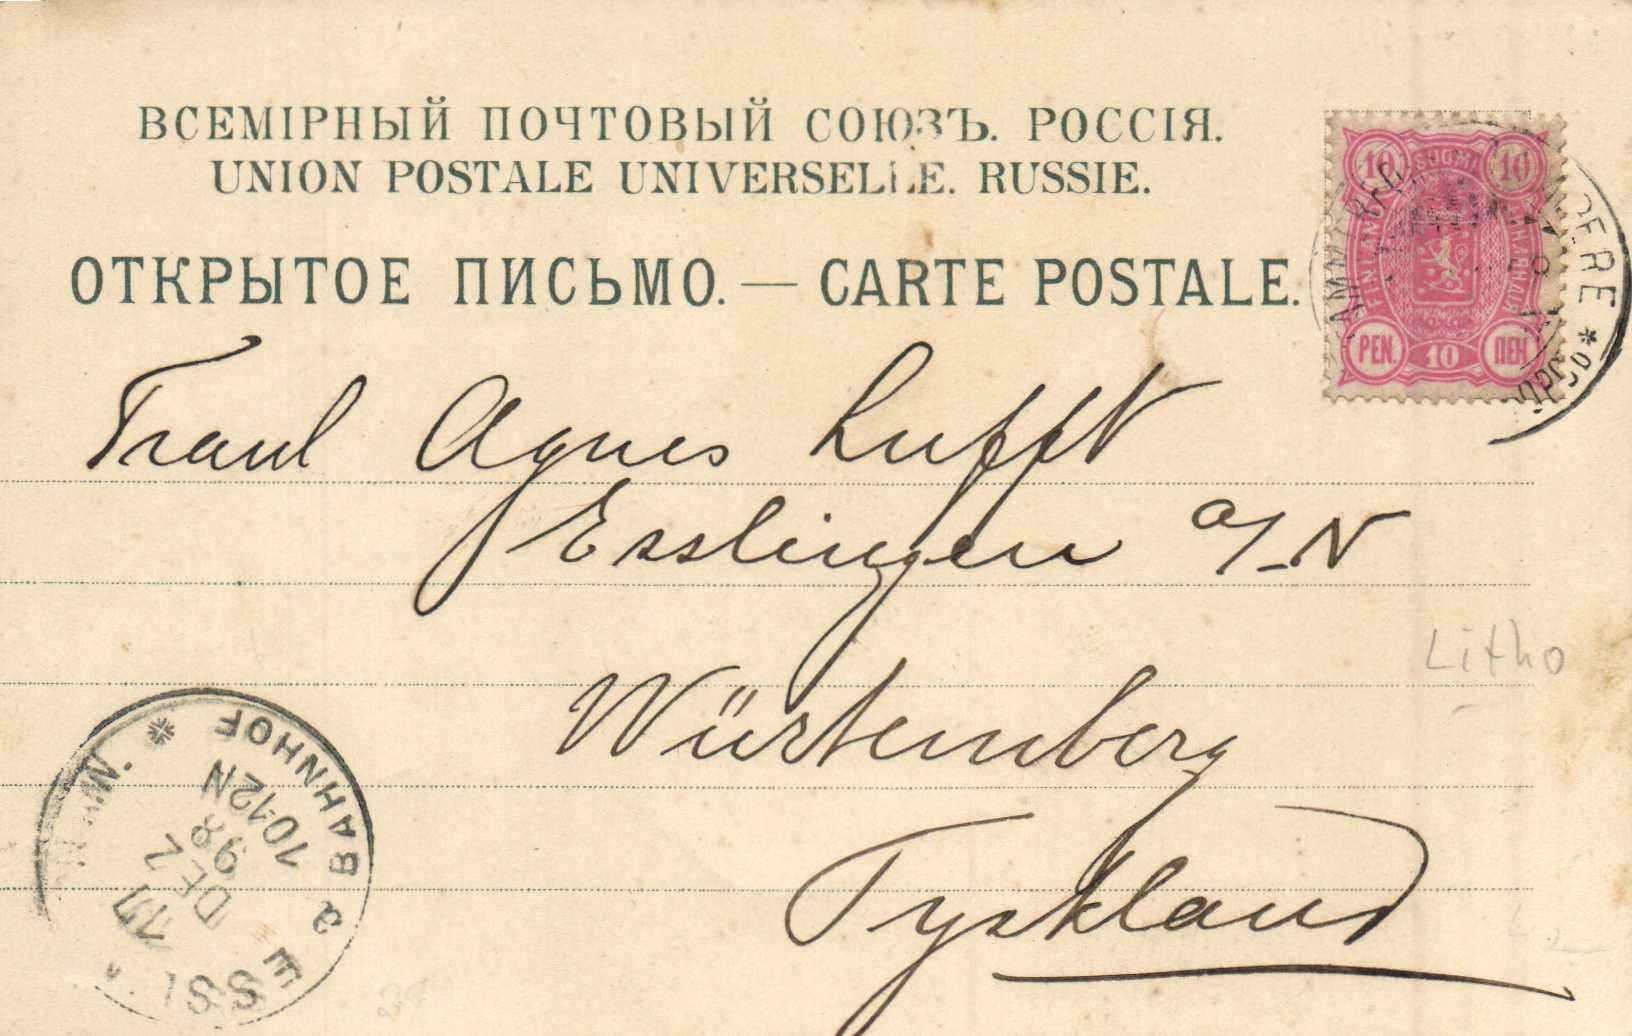 ВСЕМІРНЫЙ ПОЧТОВЫЙ СОЮЗЪ. РОССІЯ.
UNION POSTALE UNIVERSELLE. RUSSIE.
ОТКРЫТОЕ ПИСЬМО. — CARTE POSTALE.
10 SUOMI 10
FINLAND
PEN. 10 ПЕН.
Fraul Agnes Lufft
Esslingen a/N
Würtemberg
Tyskland
Litho
ESSL
a
BAHNHOF
17
DEZ
98
10-12N